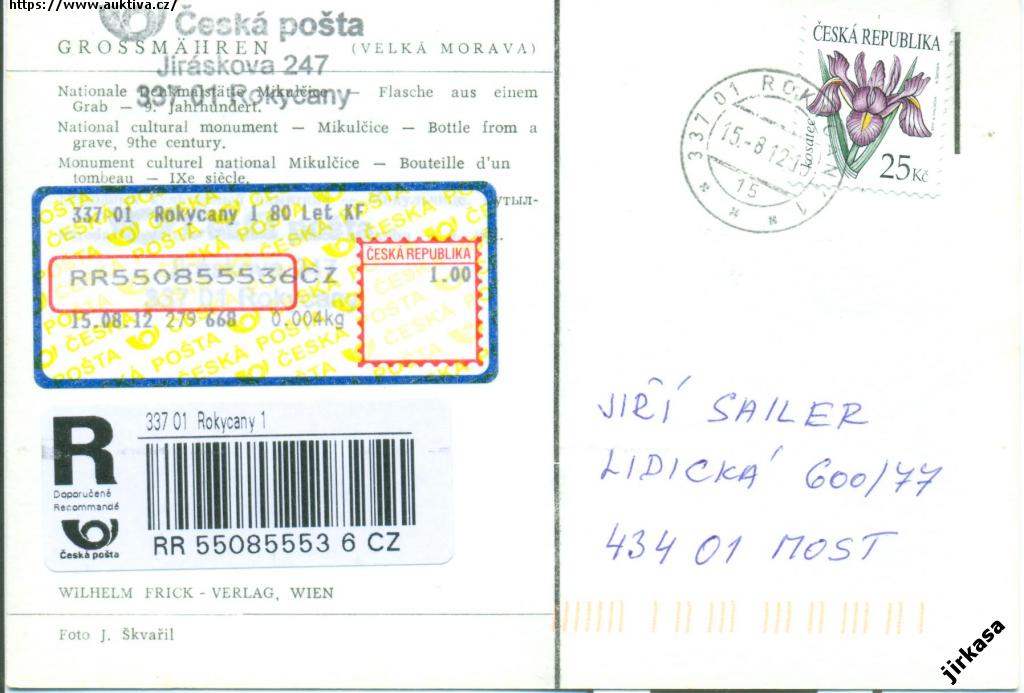 https://www.auktiva.cz/
Česká pošta
GROSSMÄHREN (VELKÁ MORAVA)
Jiráskova 247
337 01 Rokycany
Nationale Denkmalstätte Mikulčice — Flasche aus einem
Grab — 9. Jahrhundert.
National cultural monument — Mikulčice — Bottle from a
grave, 9the century.
Monument culturel national Mikulčice — Bouteille d'un
tombeau — IXe siècle.
337 01 Rokycany 1 80 Let XF
ČESKÁ REPUBLIKA
1.00
RR550855536CZ
15.08.12 279 668 0.004kg
ČESKÁ POŠTA
R
337 01 Rokycany 1
Doporučeně
Recommandé
Česká pošta
RR 55085553 6 CZ
WILHELM FRICK - VERLAG, WIEN
Foto J. Škvařil
ČESKÁ REPUBLIKA
kosatec
25Kč
337 01 ROKYCANY 1
15.-8.12-15
15
JIŘÍ SAILER
LIDICKÁ 600/77
434 01 MOST
jirkasa